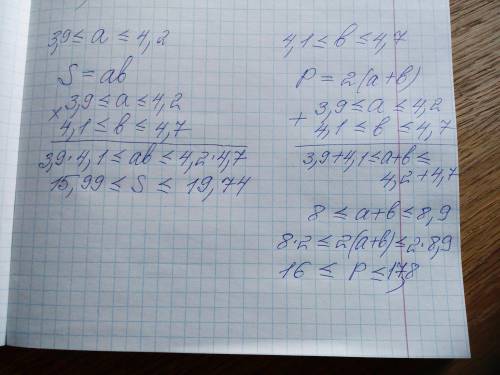 3,9 ≤ a ≤ 4,2
S = ab
× 3,9 ≤ a ≤ 4,2
4,1 ≤ в ≤ 4,7
3,9·4,1 ≤ ab ≤ 4,2·4,7
15,99 ≤ S ≤ 19,74
4,1 ≤ в ≤ 4,7
P = 2(a+в)
+ 3,9 ≤ a ≤ 4,2
4,1 ≤ в ≤ 4,7
3,9+4,1 ≤ a+в ≤
4,2+4,7
8 ≤ a+в ≤ 8,9
8·2 ≤ 2(a+в) ≤ 2·8,9
16 ≤ P ≤ 17,8